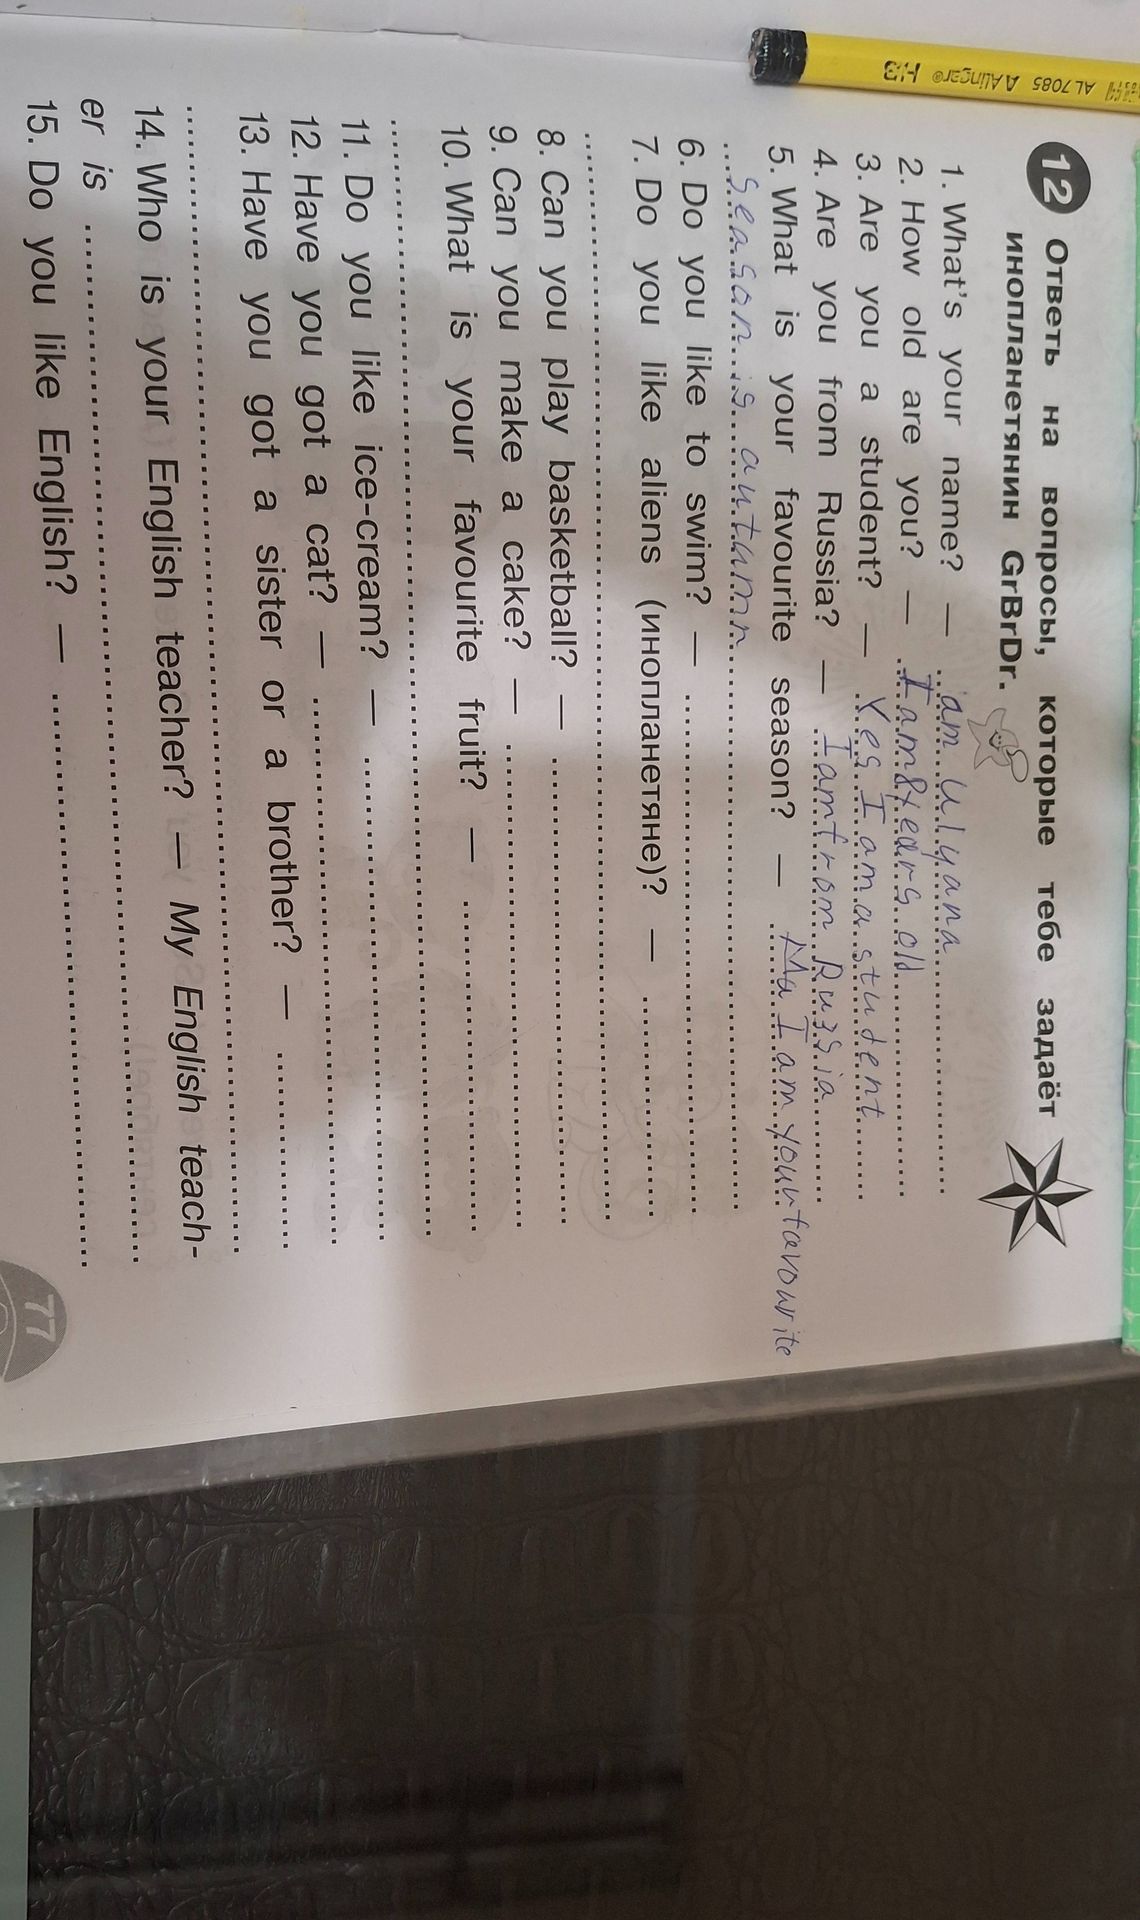 AL 7085 AAlingar® HB
12 Ответь на вопросы, которые тебе задаёт
инопланетянин GrBrDr.
1. What's your name? — am Ulyana
2. How old are you? — I am 8 years old
3. Are you a student? — Yes I am a student
4. Are you from Russia? — I am from Russia
5. What is your favourite season? — I am your favourite
season is autumn
6. Do you like to swim? —
7. Do you like aliens (инопланетяне)? —
8. Can you play basketball? —
9. Can you make a cake? —
10. What is your favourite fruit? —
11. Do you like ice-cream? —
12. Have you got a cat? —
13. Have you got a sister or a brother? —
14. Who is your English teacher? — My English teach-
er is
15. Do you like English? —
77